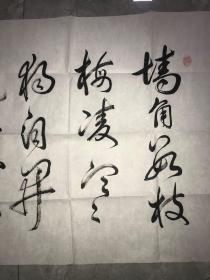 墙角数枝
梅凌寒
独自开